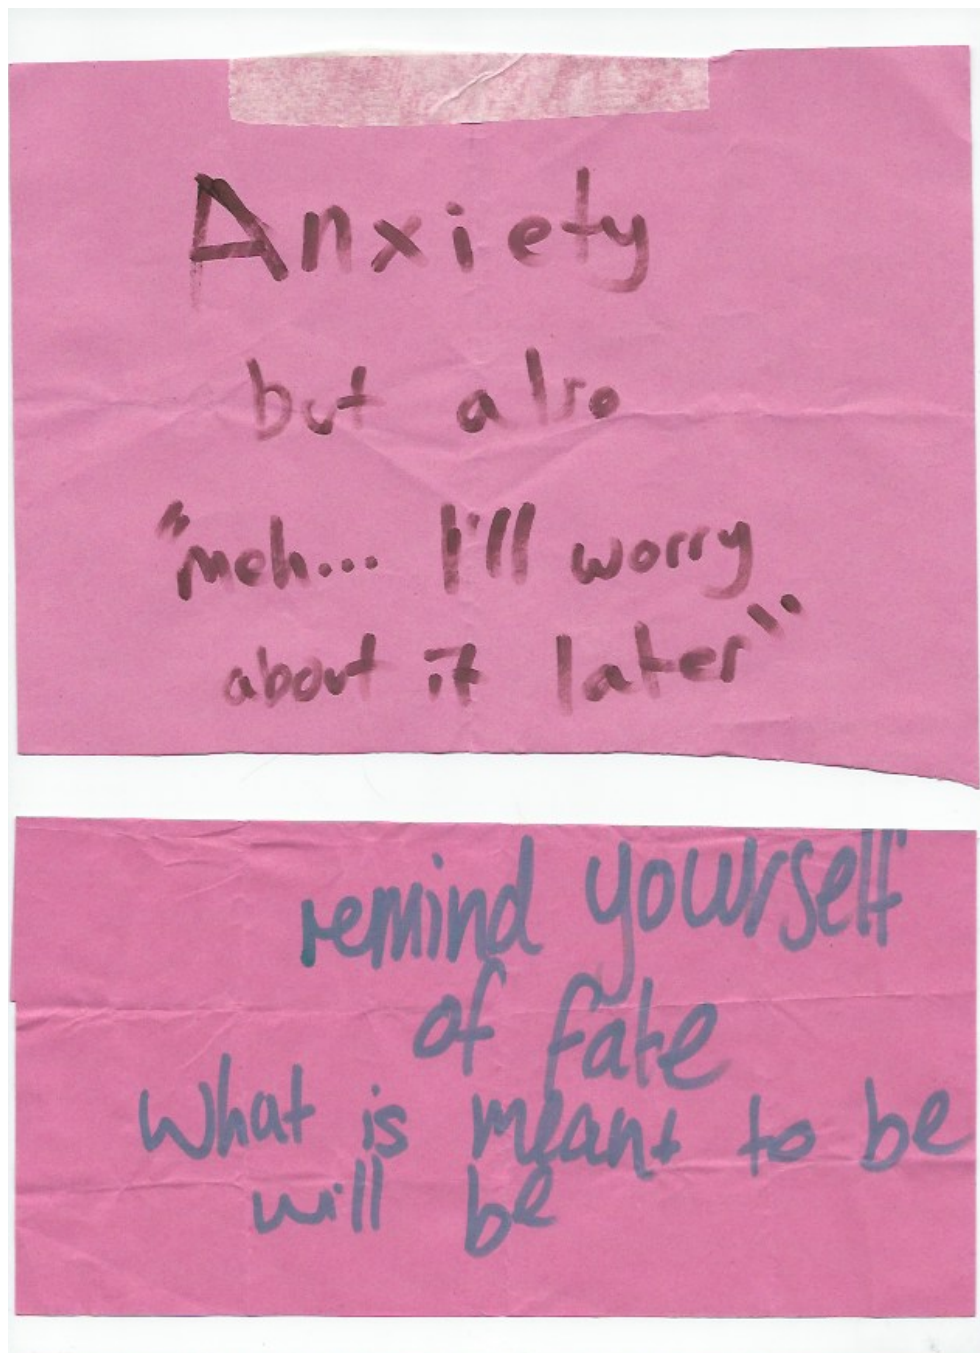 Anxiety
but also
"meh... I'll worry
about it later"
remind yourself
of fate
What is meant to be
will be